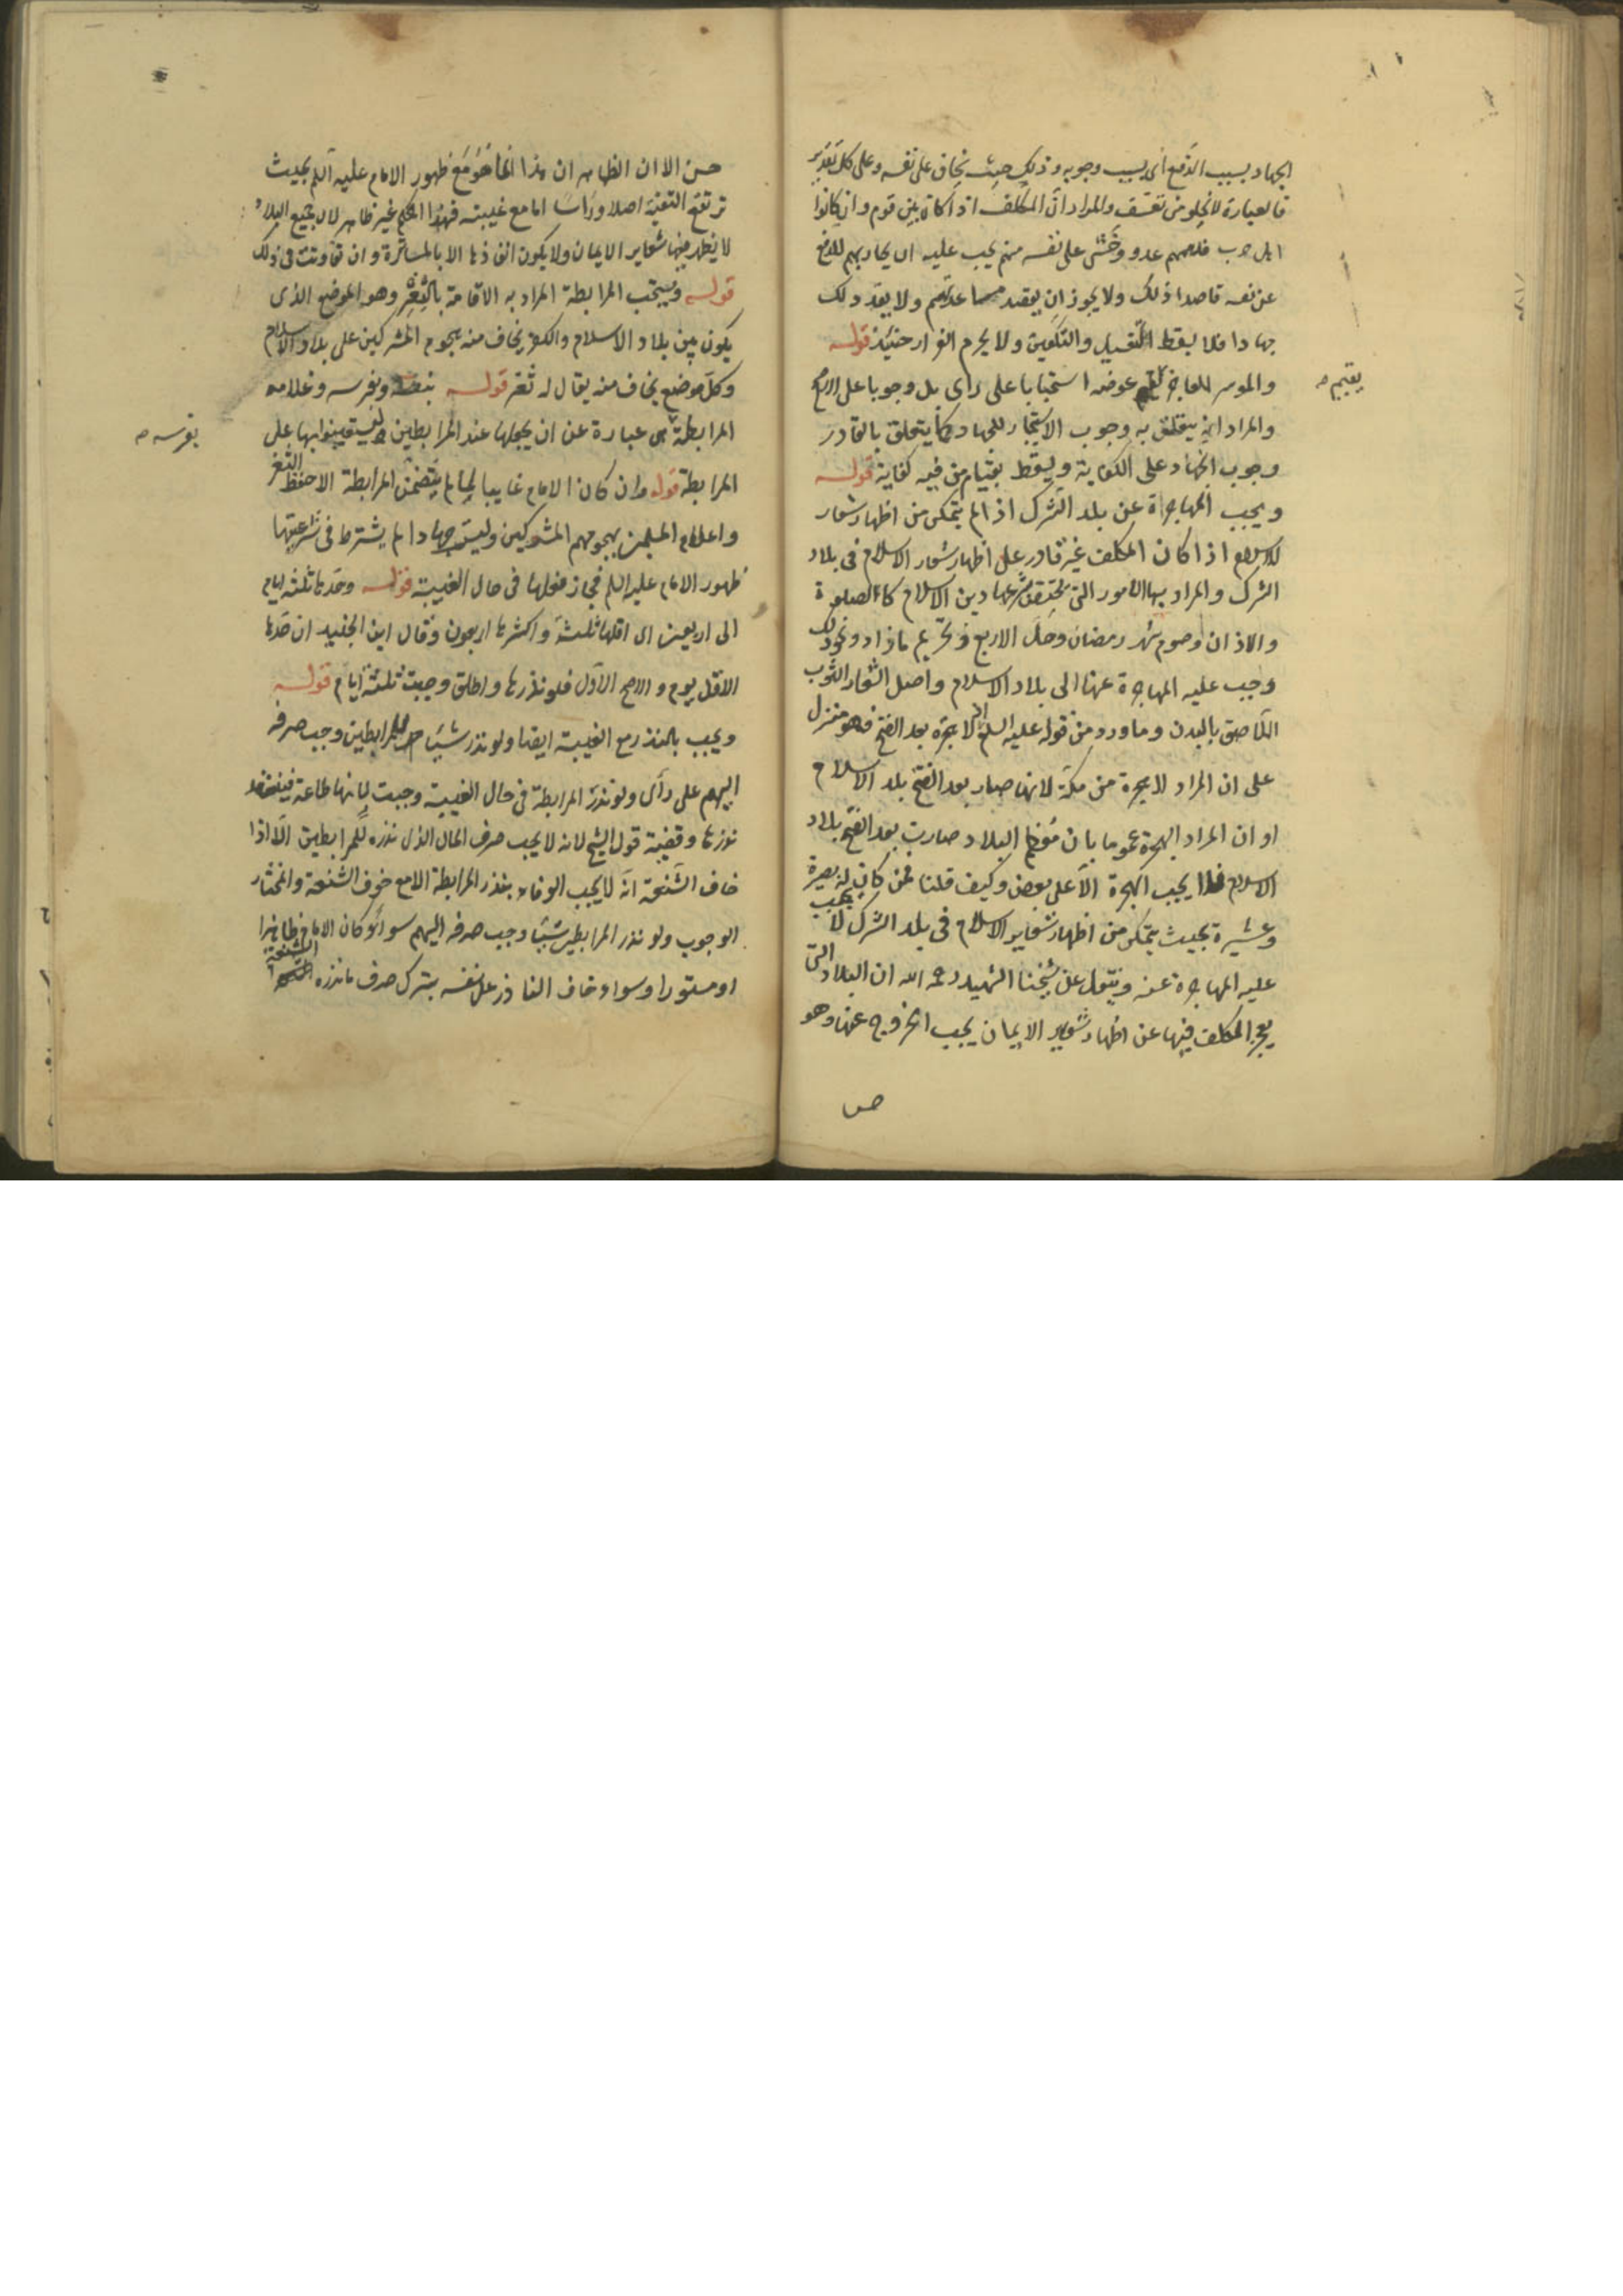 الجهاد بسبب الدفع اى بسبب وجوبه وذلك حيث يخاف على نفسه وعلى كل تقدير
فالعبارة لا تخلو من تعسف والمراد ان المكلف اذا كان بين قوم وان كانوا
اهل حرب فدهمهم عدو وخشى على نفسه منهم يجب عليه ان يحاربهم للدفع
عن نفسه قاصدا ذلك ولا يجوز ان يقصد مساعدتهم ولا يعد ذلك
جهادا فلا يسقط التغسيل والتكفين ولا يحرم الفرار حينئذ قوله
والموسر العاجز يقيم عوضه استحبابا على راى بل وجوبا على الاصح
يقيم صح
والمراد انه يتعلق به وجوب الاستيجار للجهاد كما يتعلق بالقادر
وجوب الجهاد على الكفاية ويسقط بقيام من فيه كفاية قوله
ويجب المهاجراة عن بلد الشرك اذا لم يتمكن من اظهار شعار
الاسلام اذا كان المكلف غير قادر على اظهار شعار الاسلام فى بلاد
الشرك والمراد بها الامور التى تختص بشرعها دين الاسلام كالصلوة
والاذان وصوم شهر رمضان وحل الاربع وتحريم ما زاد ونحو ذلك
وجب عليه المهاجرة عنها الى بلاد الاسلام واصل الشعار الثوب
اللاصق بالبدن وما ورد من قوله عليه السلم لا هجرة بعد الفتح فهو منزل
على ان المراد لا هجرة من مكة لانها صار بعد الفتح بلد الاسلام
او ان المراد الهجرة عموما بان معظم البلاد صارت بعد الفتح بلاد
الاسلام فلا يجب الهجرة الا على بعض وكيف قلنا فمن كان له بصيرة
وعشيرة بحيث يتمكن من اظهار شعاير الاسلام فى بلد الشرك لا يجب
عليه المهاجرة عنه وينقل عن شيخنا الشهيد رحمه الله ان البلاد التى
يعجز المكلف فيها عن اظهار شعاير الايمان يجب الخروج عنها وهو
حسن
حسن الا ان الظاهر ان هذا انما هو مع ظهور الامام عليه السلم بحيث
ترتفع التقية اصلا وراسا اما مع غيبته فهذا الحكم غير ظاهر لان جميع البلاد
لا يظهر فيها شعاير الايمان ولا يكون انفاذها الا بالمساترة وان تفاوتت فى ذلك
قوله ويستحب المرابطة المراد به الاقامة بالثغر وهو الموضع الذى
يكون بين بلاد الاسلام والكفر يخاف منه هجوم المشركين على بلاد الاسلام
وكل موضع يخاف منه يقال له ثغر قوله بنفسه وبفرسه وغلامه
بفرسه صح
المرابطة هى عبارة عن ان يجعلها عند المرابطين ليستعينوا بها على
المرابطة قوله وان كان الامام غايبا لما لم يتضمن المرابطة الا حفظ الثغر
واعلام المسلمين بهجومهم المشركين وليست جهادا لم يشترط فى شرعيتها
ظهور الامام عليه السلم فجاز فعلها فى حال الغيبة قوله وحدها ثلثه ايام
الى اربعين اى اقلها ثلثة واكثرها اربعون وقال ابن الجنيد ان حدها
الاقل يوم والاصح الاول فلو نذرها واطلق وجبت ثلثة ايام قوله
ويجب بالنذر مع الغيبة ايضا ولو نذر شيئا للمرابطين وجب صرفه
اليهم على رأى ولو نذر المرابطة فى حال الغيبة وجبت لانها طاعة فينعقد
نذرها وقضية قول الشيخ لانه لا يجب صرف المال الذى نذره للمرابطين الا اذا
خاف الشنعة انه لا يجب الوفاء بنذر المرابطة الا مع خوف الشنعة والمختار
الوجوب ولو نذر المرابطين شيئا وجب صرفه اليهم سواء كان الامام ظاهرا
او مستورا وسواء خاف الناذر على نفسه بترك صرف ما نذره الشنعة